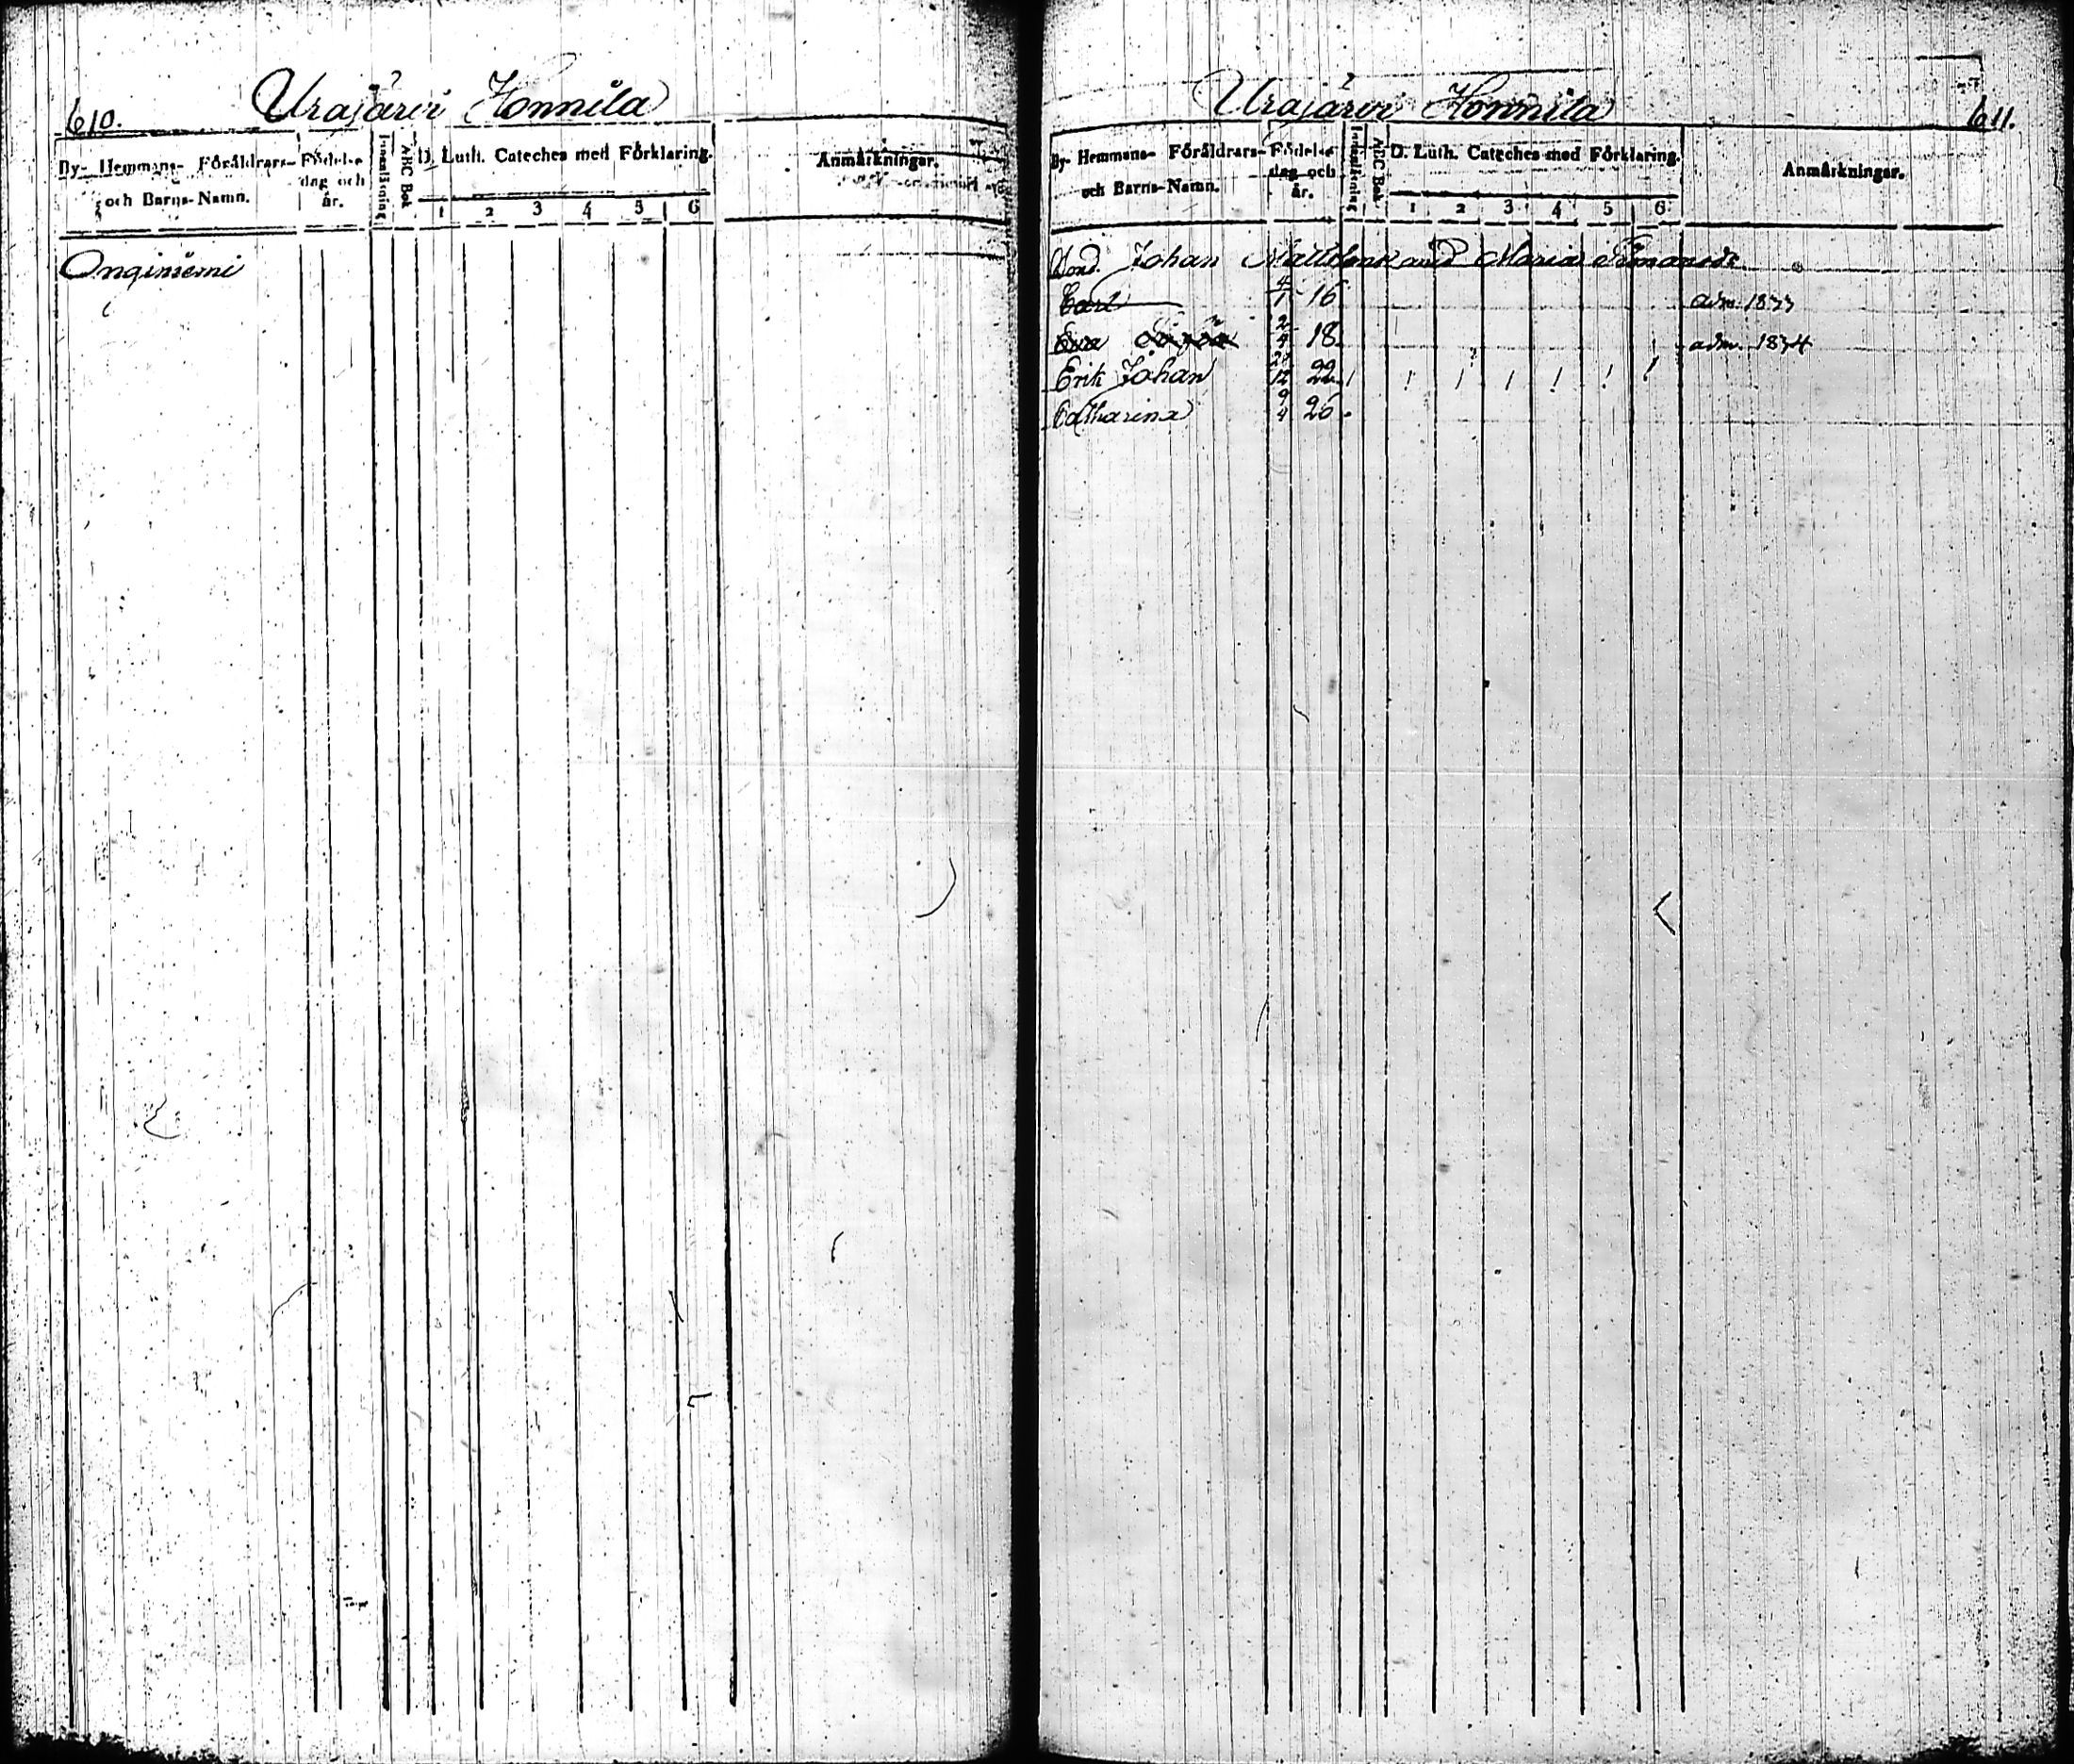 610. Urajärvi Honnila
By- Hemmans- Föräldrars- och Barns-Namn. Födelse dag och år. Innanläsning ABC Bok D. Luth. Cateches med Förklaring. Anmärkningar.
1 2 3 4 5 6
Onginiemi
Urajärvi Honnila 611.
By- Hemmans- Föräldrars- och Barns-Namn. Födelse dag och år. Innanläsning ABC Bok D. Luth. Cateches med Förklaring. Anmärkningar.
1 2 3 4 5 6
Johan Maria
Carl 4/1 16 adm. 1833
Eva 2/4 18 adm. 1834
Erik Johan 28/12 22
Catharina 9/4 26